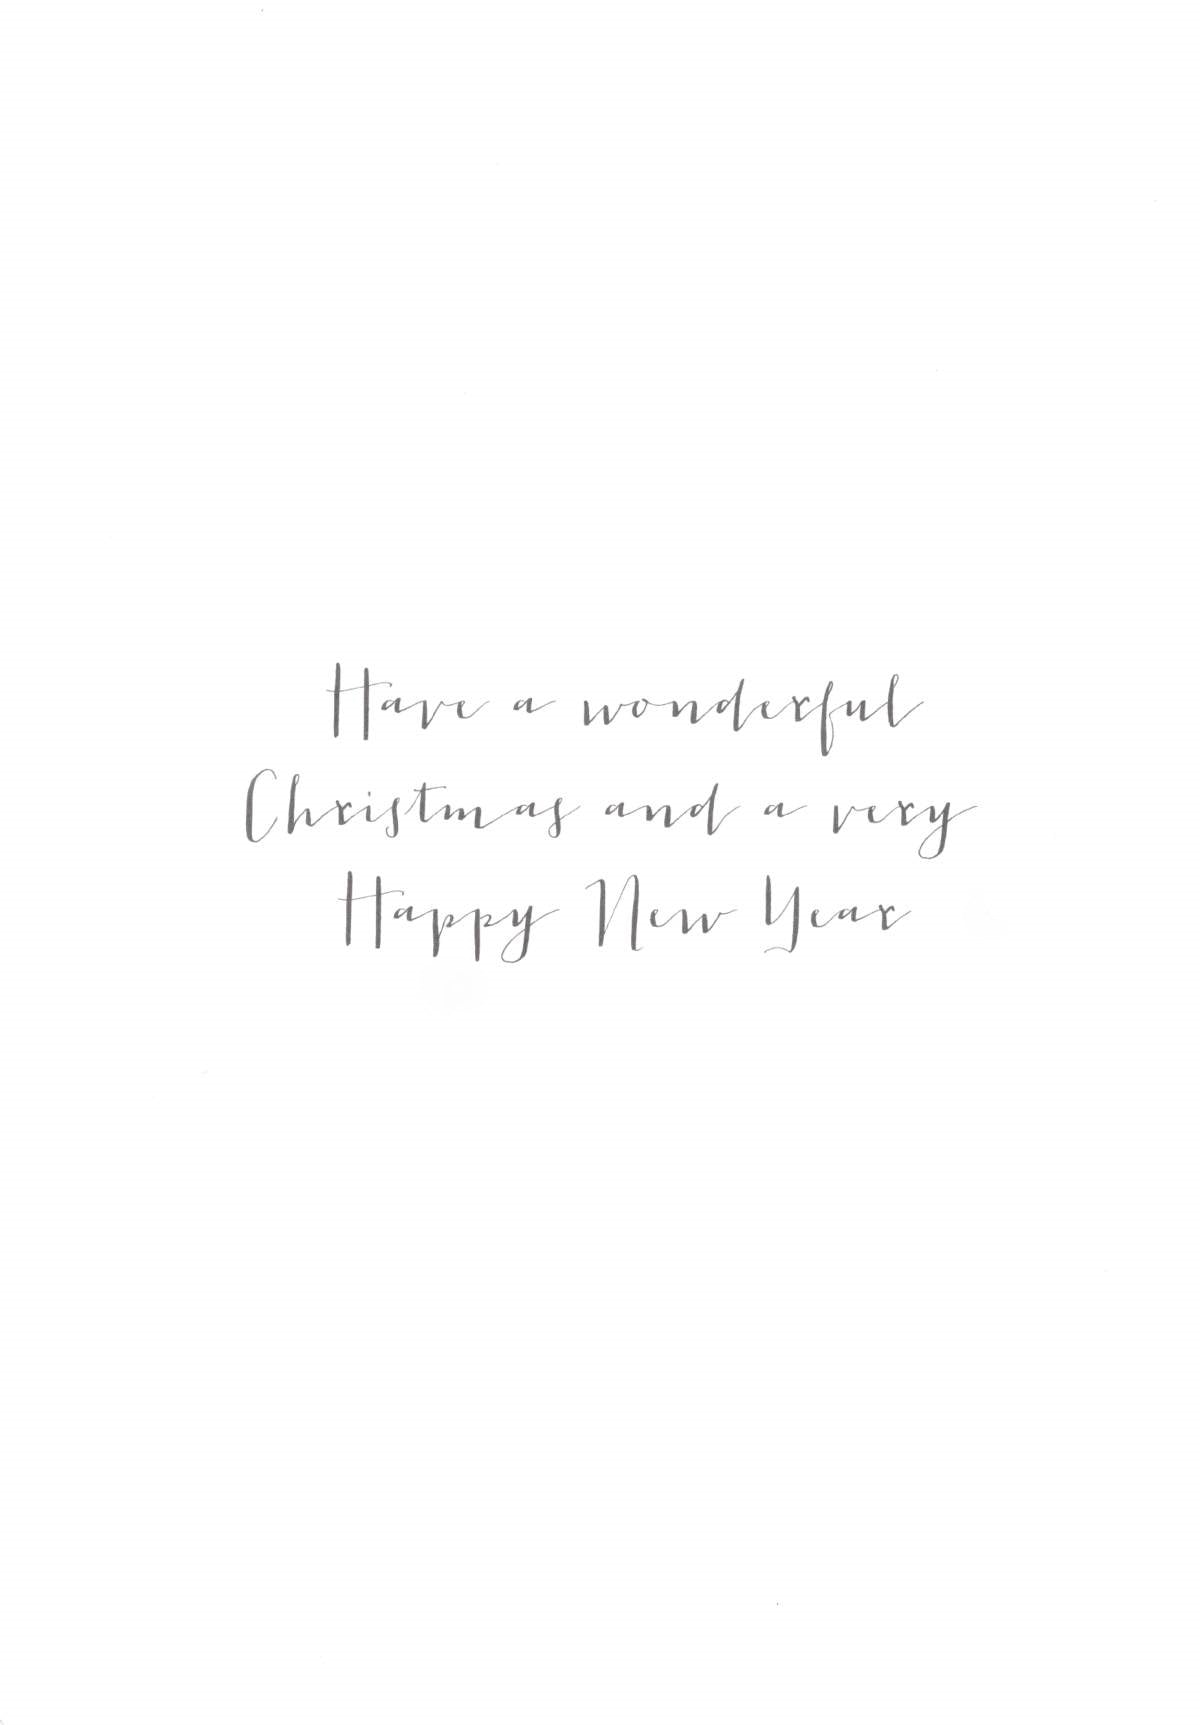 Have a wonderful
Christmas and a very
Happy New Year